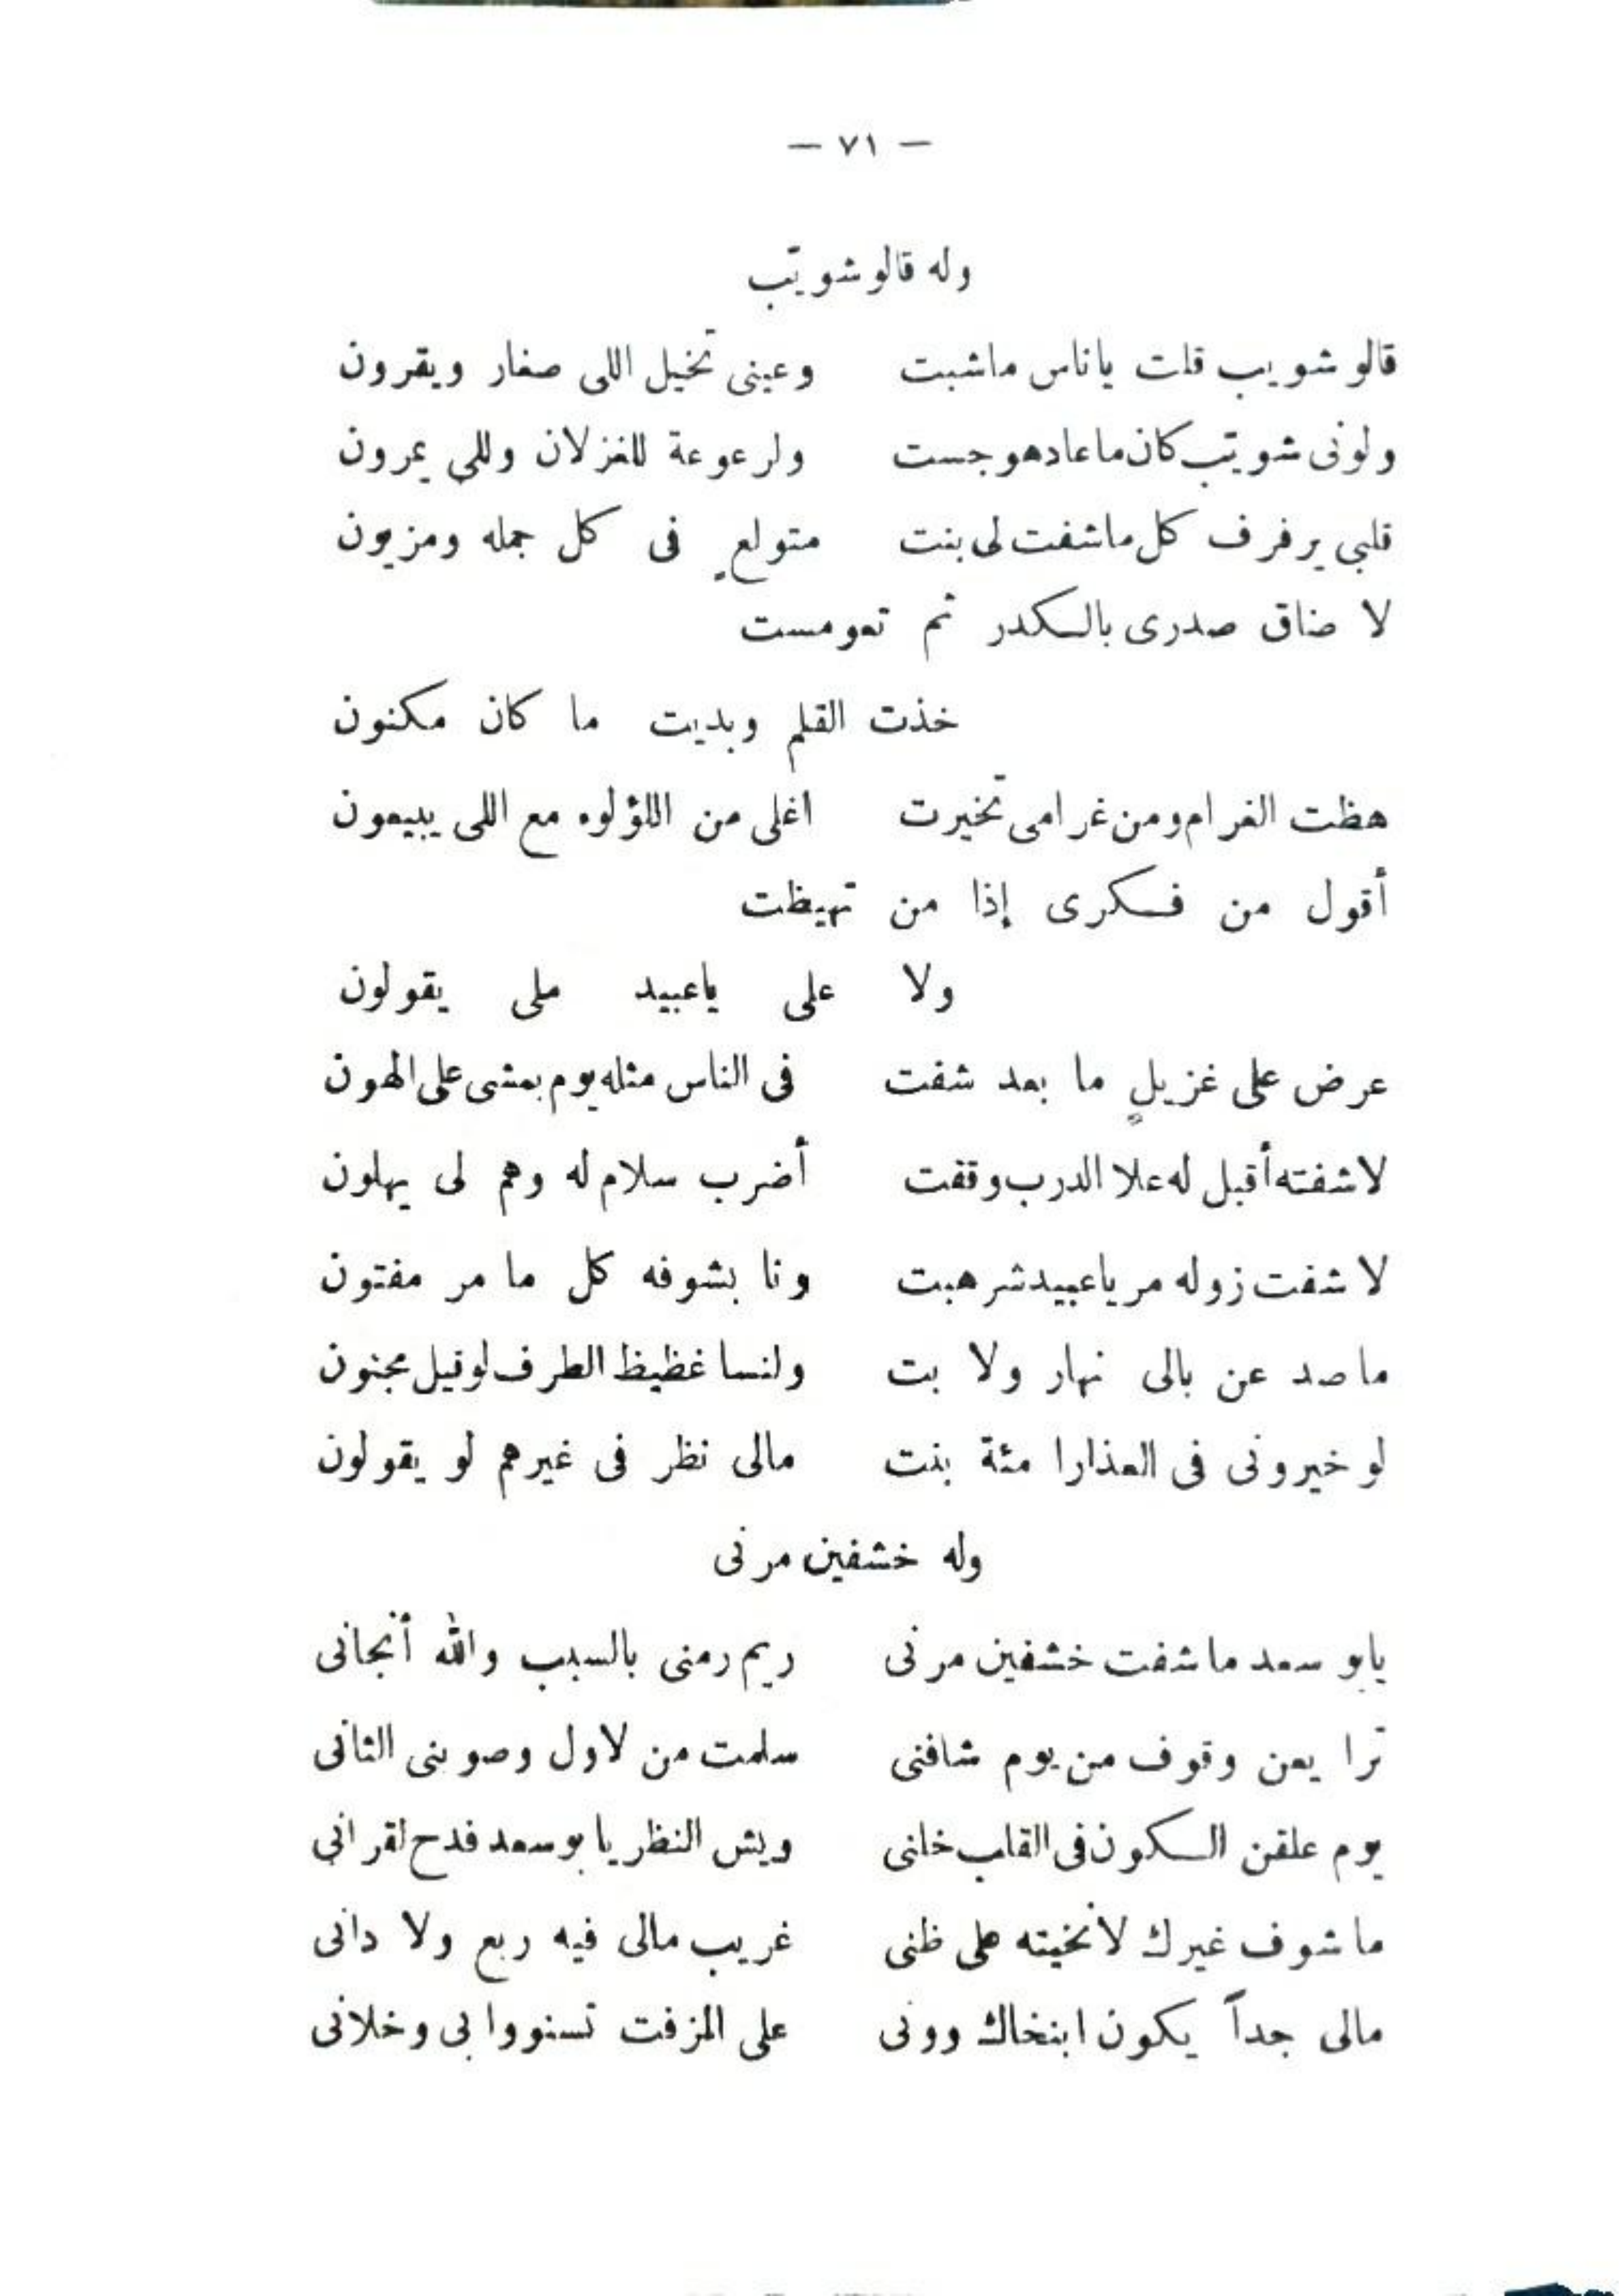 — ٧١ —
وله قالو شويّب
قالو شويب قلت ياناس ماشبت وعينى تخيل اللى صغار ويقرون
ولونى شويّب كان ماعادهوجست ولرعوعة للغزلان وللي يمرون
قلبي يرفرف كل ماشفت لى بنت متولعٍ فى كل جمله ومزيون
لا ضاق صدرى بالكدر ثم تعومست
خذت القلم وبديت ما كان مكنون
هظت الغرام ومن غرامى تخيرت اغلى من اللؤلوه مع اللى يبيعون
أقول من فكرى إذا من تهيظت
ولا على ياعبيد ملى يقولون
عرض على غزيلٍ ما بعد شفت فى الناس مثله يوم بمشى على الهون
لاشفته أقبل له علا الدرب وقفت أضرب سلام له وهم لى يهلون
لا شفت زوله مر ياعبيد شرهبت ونا بشوفه كل ما مر مفتون
ماصد عن بالى نهار ولا بت ولنسا غظيظ الطرف لوقيل مجنون
لو خيرونى فى العذارا مئة بنت مالى نظر فى غيرهم لو يقولون
وله خشفين مرنى
يابو سعد ماشفت خشفين مرنى ريم رمنى بالسبب والله أنجانى
ترا يعن وقوف من يوم شافنى سلمت من لاول وصوبنى الثانى
يوم علقن السكون فى القلب خلنى ويش النظر يا بوسعد فدح لقرانى
ماشوف غيرك لانخيته على ظنى غريب مالى فيه ربع ولا دانى
مالى جداً يكون ابنخاك وونى على المزفت تسنووا بى وخلانى